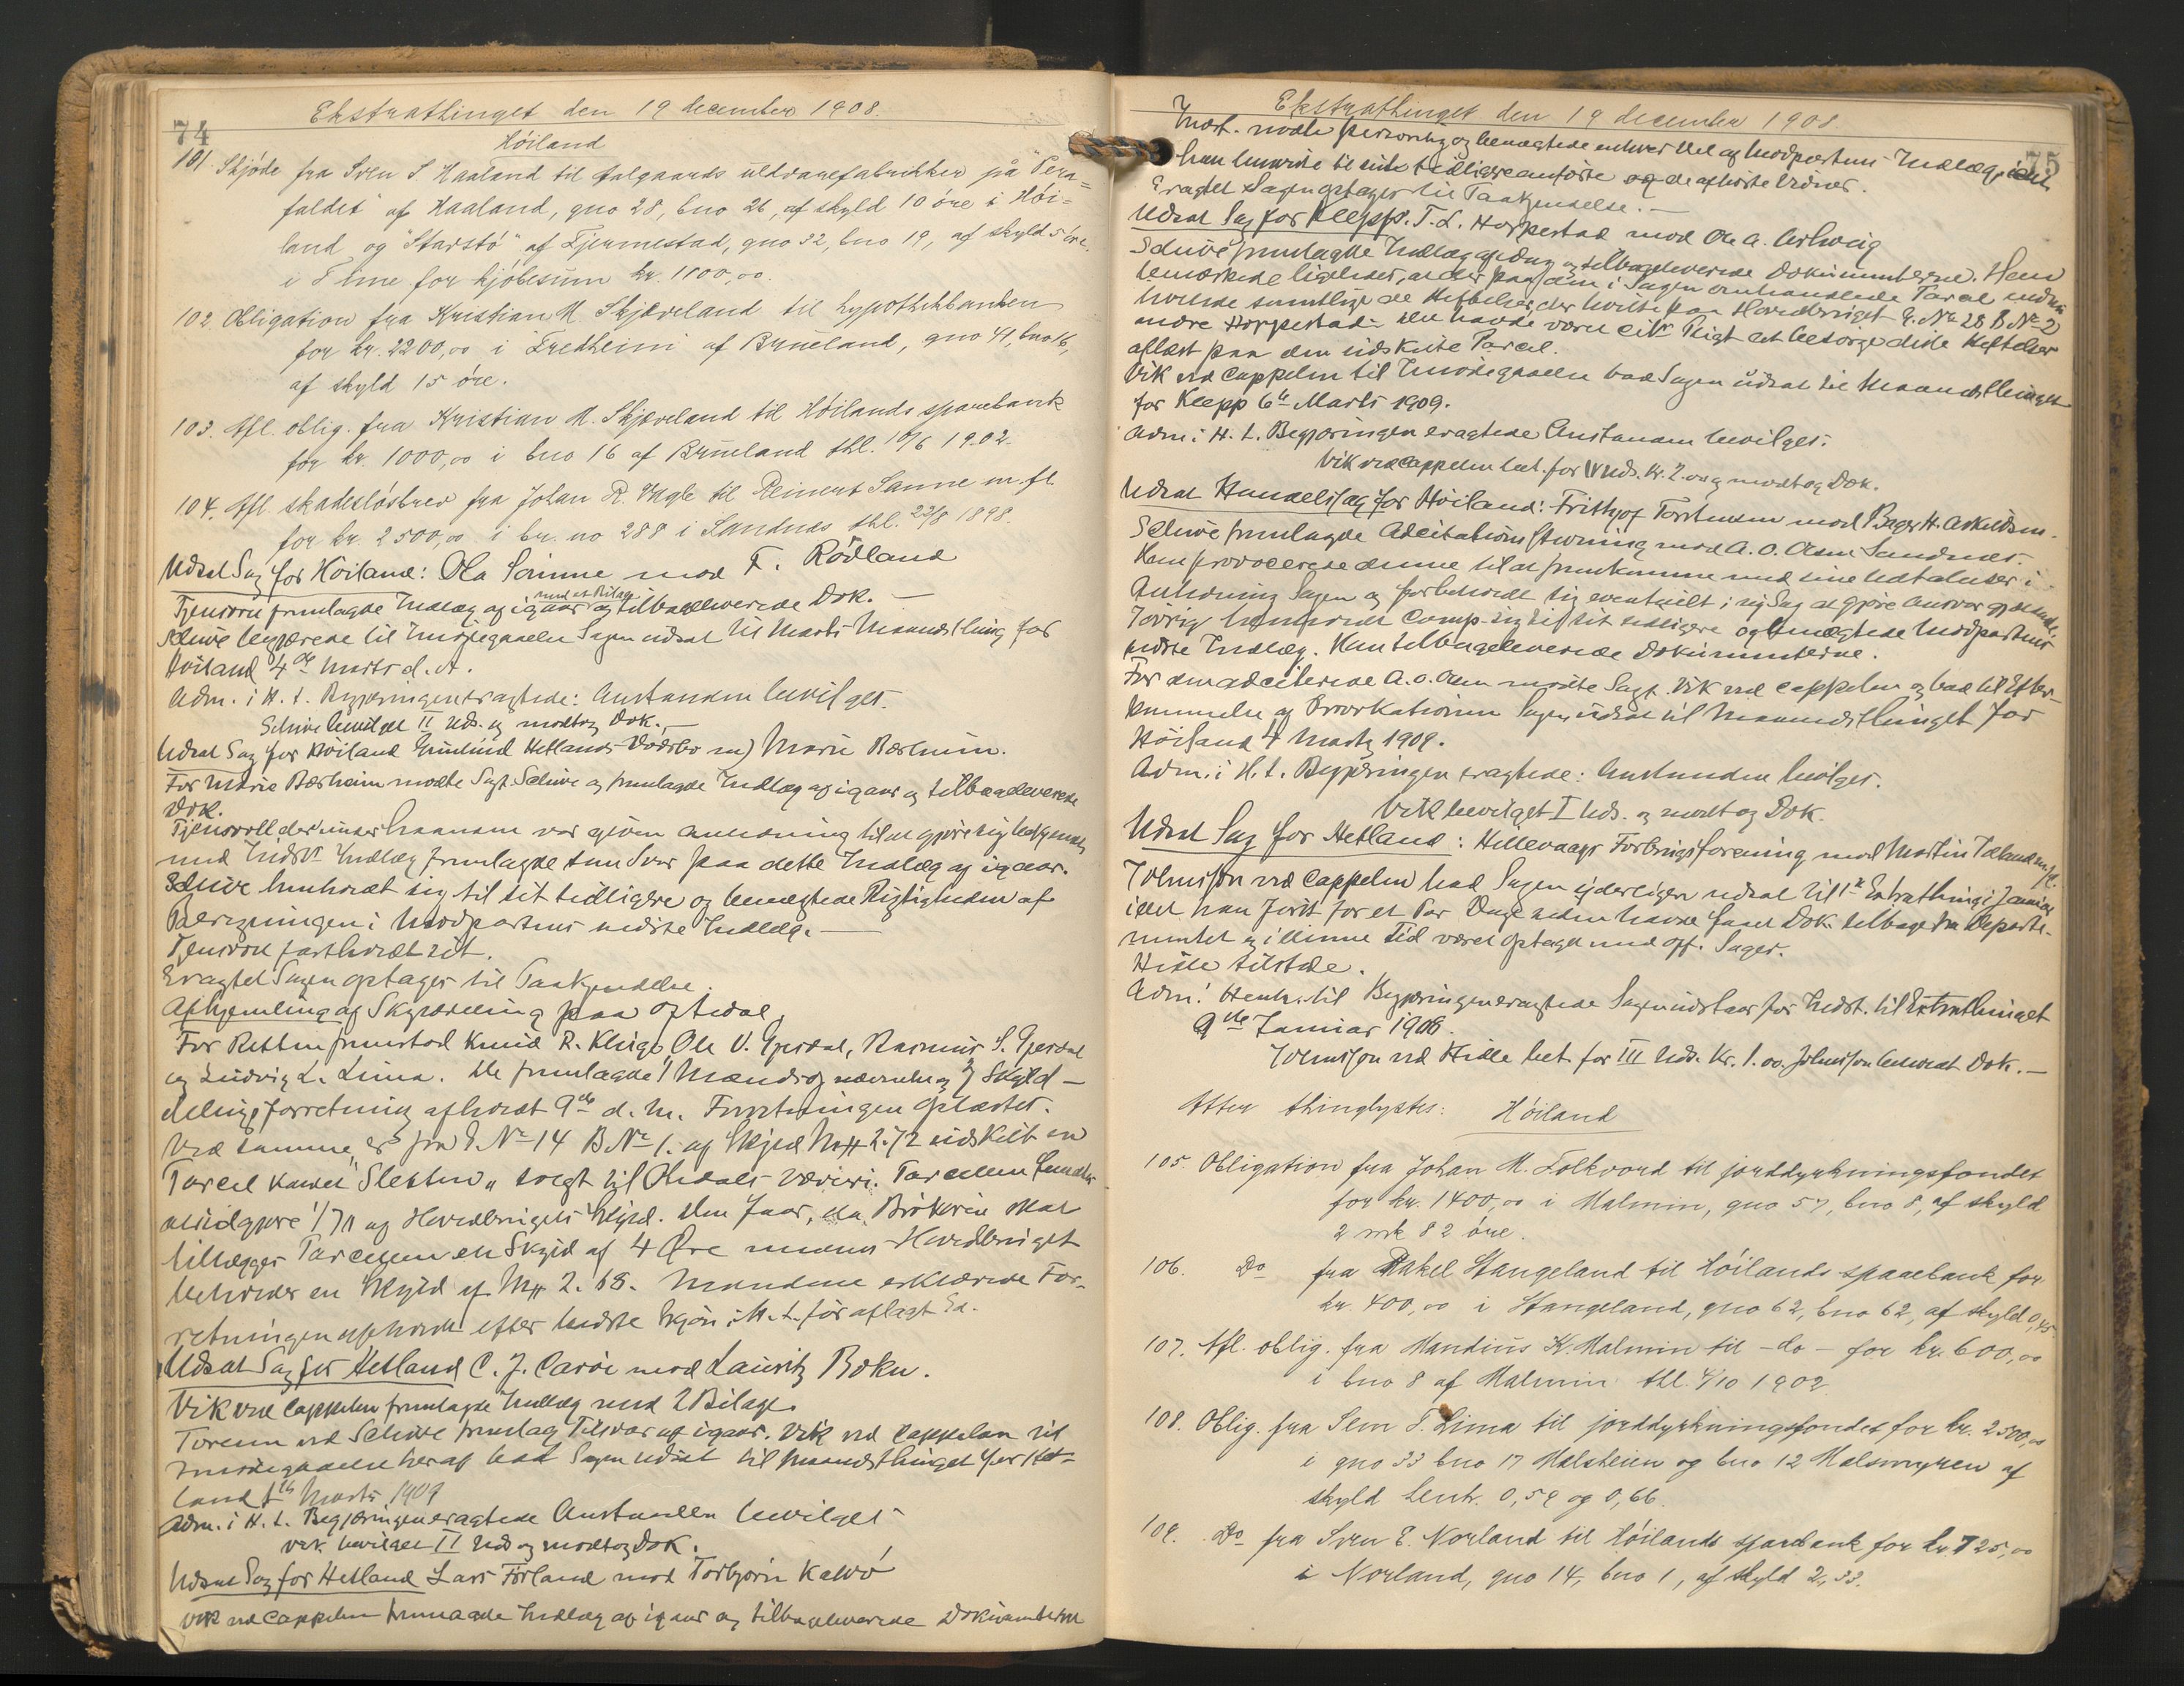 74
Ekstrathinget den 19 december 1908.
Høiland
101. Skjøde fra Sven S Haaland til Aalgaards uldvarefabrikker på "Pera=
faldet" af Haaland, gno 28, bno 26, af skyld 10 øre i Høi=
land og "Starstø" af Tjermestad, gno 32, bno 19, af skyld 5 øre,
i Time for kjøbesum kr. 1100,00.
102. Obligation fra Kristian M. Skjæveland til hypothekbanken
for kr. 2200,00 i Fredheim af Brueland, gno 41, bno 16,
af skyld 15 øre.
103. Afl. oblig. fra Kristian M. Skjæveland til Høilands sparebank
for kr. 1000,00 i bno 16 af Brueland thl. 10/6 1902.
104. Afl. skadesløsbrev fra Johan R. Vagle til Reinert Sanne m. fl.
for kr. 2500,00 i br. no 288 i Sandnes thl. 23/8 1898.
Udsat Sag for Høiland: Ola Sørinne mod T. Rødland
Tjensvoll fremlagde Indlæg af igaar med et Bilag og tilbageleverede Dok. —
Schive begjærede til Imødegaaelse Sagen udsat til Marts Maanedsthing for
Høiland 4de Marts d. A.
Adm. i H. t. Begjæringen eragtede: Anstanden bevilges.
Schive bevilget II Uds. og modtog Dok. —
Udsat Sag for Høiland Gunhild Hetlands Dødsbo m) Marie Bærheim.
For Marie Bærheim mødte Sagf. Schive og fremlagde Indlæg af igaar og tilbageleverede
Dok.
Tjensvoll der unser haanam var given Anledning til at gjøre sig bekjendt
med Indst. Indlæg fremlagde sin Svar paa dette Indlæg af igaar.
Schive henholdt sig til sit tidligere og benegtede Rigtigheden af
Beregningen i Modpartens sidste Indlæg. —
Tjensvoll fastholdt sit.
Eragtet Sagen optages til Paakjendelse.
Afhjemling af Skylddeling paa Opstdal,
For Retten fremstod Knud R. Kluge, Ole V. Gjesdal, Rasmus S. Gjesdal
og Ludvig L. Lima. De fremlagde 1) Mandsopnævnelse og 2) Skyld-
delingsforretning afholdt 9de d. M. Forretningen oplæstes.
Ved samme er fra G. No 14 B. No 1. af Skyld Mk 2.72 udskilt en
Parcel kaldet "Sletten" solgt til Oltedals Væveri. Parcellen fandtes
at udgjøre 1/70 af Hovedbrugets Skyld. Den faar, da Brøkerne skal
tillægges Parcellen en Skyld af 4 Øre medens Hovedbruget
beholder en Skyld af Mk 2.68. Mændene erklærede For-
retningen afholdt efter bedste Skjøn i H. t. før aflagt Ed.
Udsat Sag for Hetland C. J. Carøe mod Lauritz Bøkn.
Vik ved Cappelen fremlagde Indlæg med 2 Bilage.
Toreum ved Schive fremlag Tilsvar af igaar. Vik ved Cappelen til
Imødegaaelse heraf bad Sagen udsat til Maanedsthinget for Het-
land 5te Marts 1909
Adm. i H. t. Begjæringen eragtede Anstanden bevilget
Vik bevilget II Uds og modtog Dok.
Udsat Sag for Hetland Lars Førland mod Torbjørn Kalvø
Vik ved Cappelen fremlagde Indlæg af igaar og tilbageleverede Dokumenterne
75
Ekstrathinget den 19 december 1908.
Indst. mødte personlig og benægtede enhver Del af Modpartens Indlæg, idet
han henviste til sin tidligere anførte og de afhørte Vidner.
Eragtet Sagen optages til Paakjendelse. —
Udsat Sag for Klepp. T. L. Hoppestad mod Ole A. Erlwig
Schive fremlagde Indlæg af idag og tilbageleverede Dokumenterne. Han
bemærkede ligeledes, at der paa den i Sagen omhandlede Parcel endnu
hvilede samtlige de Heftelser, der hvilte paa Hovedbruget G. No 28 B No 2
andre Hoppestad. Det havde været Cits Pligt at besørge disse Heftelser
aflæst paa den udskilte Parcel.
Vik ved Cappelen til Imødegaaelse bad Sagen udsat til Maanedsthinget
for Klepp 6te Marts 1909.
Adm i H. t. Begjæringen eragtede Anstanden bevilges.
Vik ved Cappelen bet. for IV Uds. Kr. 2.00 og modtog Dok.
Udsat Handelssag for Høiland: Frithjof Torstensen mod Bager H. Askildsen.
Schive fremlagde Adcitationsstevning mod A. O. Aasen Sandnes.
Han provocerede denne til at fremkomme med sine Udtalelser i
Anledning Sagen og forbeholdt sig eventuelt i ny Sag at gjøre Ansvar gjældende.
Iøvrig henholdt Comp. sig til sit tidligere og benægtede Modpartens
sidste Indlæg. Han tilbageleverede Dokumenterne.
For den adciterede A. O. Aasen mødte Sagf. Vik ved Cappelen og bad til Efter-
kommelse af Provokationen Sagen udsat til Maanedsthinget for
Høiland 4 Marts 1909.
Adm. i H. t. Begjæringen eragtede: Anstanden bevilges.
Vik bevilget I Uds. og modtog Dok.
Udsat Sag for Hetland: Hillevaags Forbrugsforening mod Martin Tæland m. fl.
Johnsson ved Cappelen bad Sagen yderligere udsat til 1ste Extrathing i Januar
idet han først for et Par Dage siden havde faaet Dok. tilbage fra Departe-
mentet og i denne Tid været optaget med off. Sager.
Hille tilstede.
Adm: Henh. til Begjæringen eragtede Sagen udstaar for Indst. til Extrathinget
9de Januar 1908.
Johnsson ved Hille bet. for III Uds. Kr. 1.00. Johnsson beholdt Dok. —
Atter thinglystes: Høiland
105. Obligation fra Johan M. Folkvord til jorddyrkningsfondet
for kr. 1400,00 i Malmin, gno 57, bno 8, af skyld
2 mrk 82 øre.
106. Do fra Rakel Stangeland til Høilands sparebank for
kr. 400,00 i Stangeland, gno 62, bno 62, af skyld 0,45
107. Afl. oblig. fra Mandius K. Malmin til -do- for kr. 600,00
i bno 8 af Malmin thl. 4/10 1902.
108. Oblig. fra Sem T. Lima til jorddyrkningsfondet for kr. 2500,00
i gno 33 bno 17 Malsheien og bno 12 Malsmyren af
skyld henh. 0,59 og 0,66.
109. Do fra Sven E. Norland til Høilands sparebank for kr. 725,00
i Norland, gno 14, bno 1, af skyld 2,33.